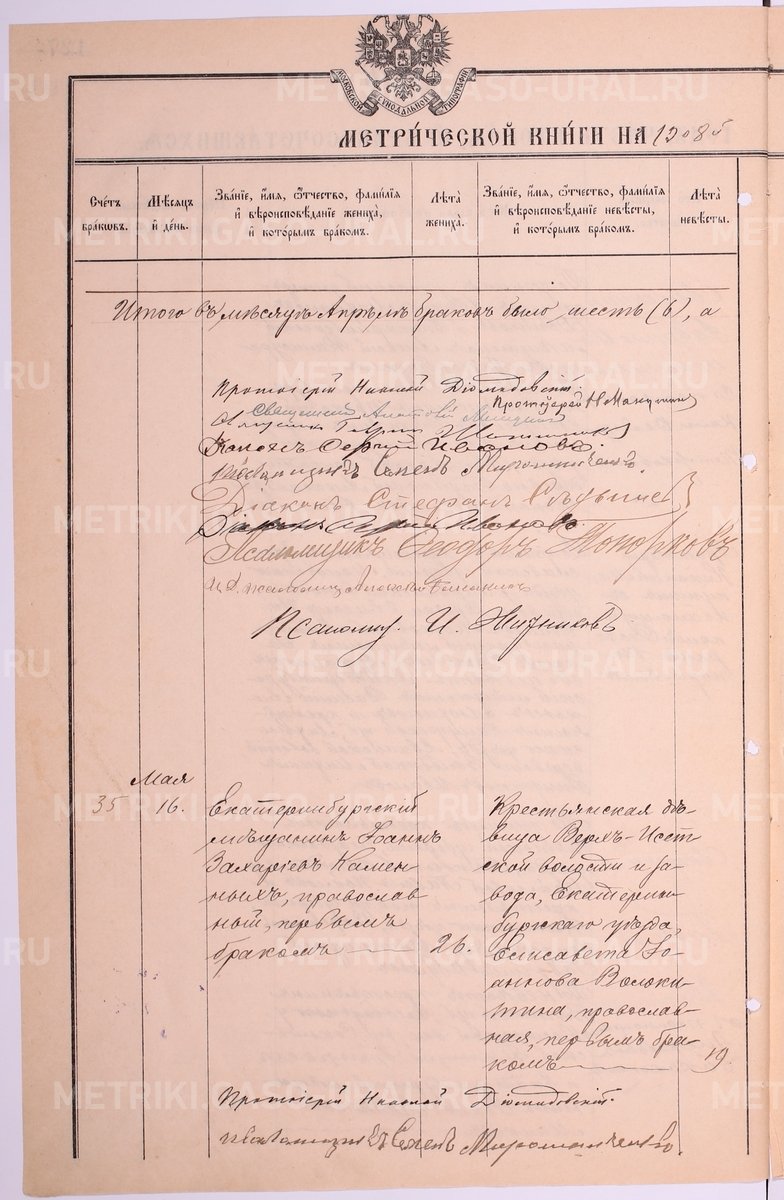 МОСКОВСКОЙ СѴНОДАЛЬНОЙ ТИПОГРАФІИ
МЕТРИ́ЧЕСКОЙ КНИ́ГИ НА 1908 г.
Сче́тъ бра́кѡвъ.
Мѣ́сяцъ и҆ де́нь.
Зва́нїе, и҆́мя, ѻ҆́тчество, фами́лїя и҆ вѣроисповѣ́данїе жениха̀, и҆ кото́рымъ бра́комъ.
Лѣта̀ жениха̀.
Зва́нїе, и҆́мя, ѻ҆́тчество, фами́лїя и҆ вѣроисповѣ́данїе невѣ́сты, и҆ кото́рымъ бра́комъ.
Лѣта̀ невѣ́сты.
Итого въ мѣсяцѣ Апрѣлѣ браковъ было шесть (6), а
Протоіерей Николай Діомидовскій.
Протоіерей Н
Священникъ Анатолій
Діаконъ Сергій Ивановъ.
Псаломщикъ Семенъ Мирошниченко.
Діаконъ Стефанъ
Діаконъ Сергій Ивановъ.
Псаломщикъ Ѳеодоръ Топорковъ
И. д. псаломщ. Алексій
Псаломщ. И. Житниковъ
Мая
35
16.
Екатеринбургскій
мѣщанинъ Іоаннъ
Захаріевъ Камен-
ныхъ, православ-
ный, первымъ
бракомъ
26.
Крестьянская дѣ-
вица Верхъ-Исет-
ской волости и за-
вода, Екатерин-
бургскаго уѣзда,
Елисавета Іо-
аннова Волоки-
тина, православ-
ная, первымъ бра-
комъ
19
Протоіерей Николай Діомидовскій.
Псаломщикъ Семенъ Мирошниченко.
METRIKI.GASO-URAL.RU